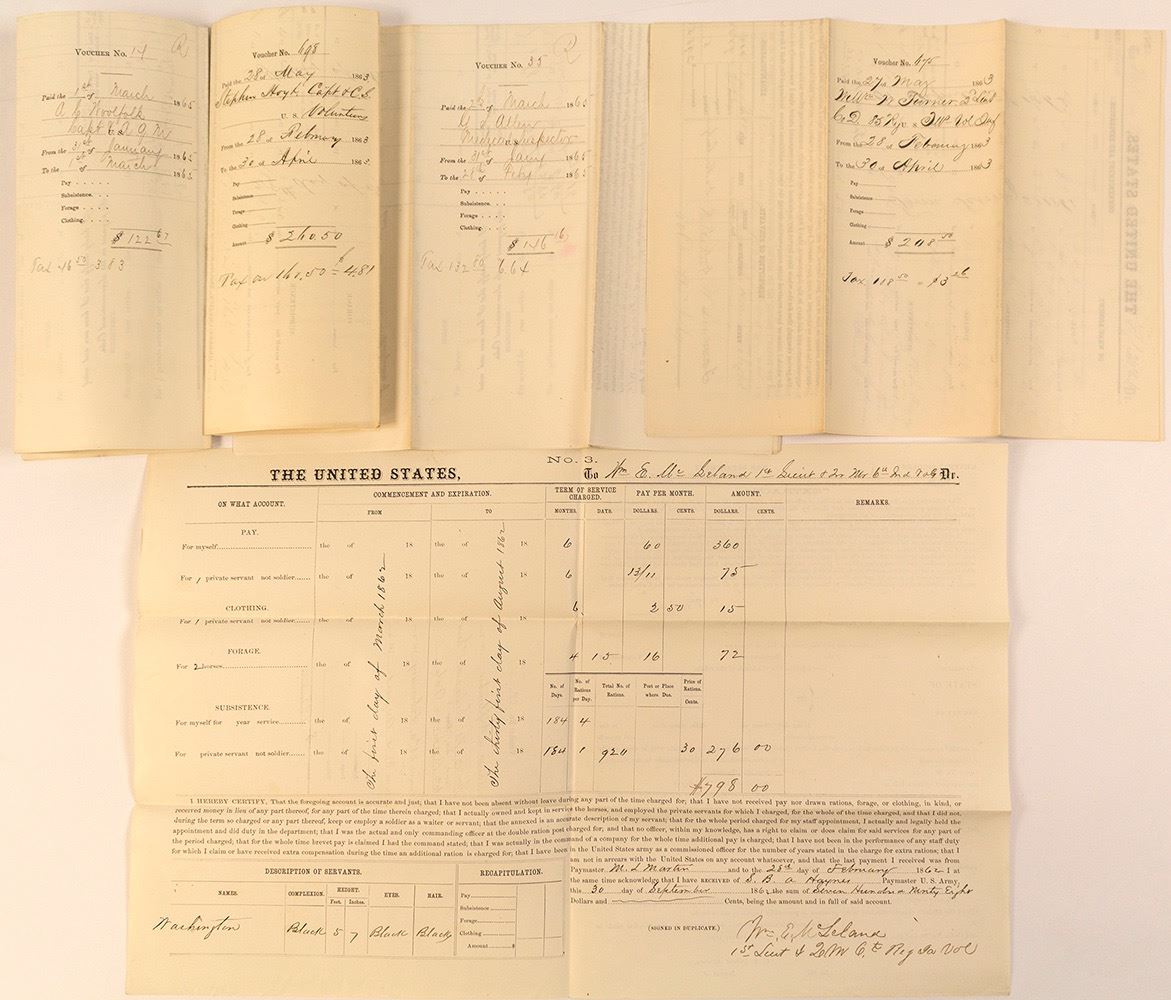 VOUCHER No. 14
Paid the 1st of March 1865
A. E. Woolfolk
Capt & A. Q. M.
From the 31st of January 1865
To the 1st of March 1865
Pay
Subsistence
Forage
Clothing
$ 122
Tax
3 83
Voucher No. 698
Paid the 28 of May 1863
Stephen Hoyt, Capt & C.S.
U. S. Volunteers
From the 28 of February 1863
To the 30 of April 1863
Pay
Subsistence
Forage
Clothing
Amount $ 260.50
Tax on 160.50 = 4.81
VOUCHER No. 35
Paid the of March 1865
Allen
Medical Inspector
From the 31st of Jany 1865
To the 28th of Feby 1865
Pay
Subsistence
Forage
Clothing
$ 146 16
Tax 132 80 6.64
Voucher No. 675
Paid the 27 of May 1863
Turner 2 Lieut
Co D. 85 Vol
From the 28 of February 1863
To the 30 of April 1863
Pay
Subsistence
Forage
Clothing
Amount $ 218 50
Tax 118 50 = $3 56
THE UNITED STATES
No. 3.
THE UNITED STATES, To Wm E. McLeland 1st Lieut & Qr Mr 6th Ind Vols Dr.
ON WHAT ACCOUNT. COMMENCEMENT AND EXPIRATION. TERM OF SERVICE CHARGED. PAY PER MONTH. AMOUNT. REMARKS.
FROM TO MONTHS. DAYS. DOLLARS. CENTS. DOLLARS. CENTS.
PAY.
For myself the of 18 the of 18 6 60 360
For 1 private servant not soldier the of 18 the of 18 6 13/11 75
CLOTHING.
For 1 private servant not soldier the of 18 the of 18 6 2 50 15
FORAGE.
For 2 horses the of 18 the of 18 4 15 16 72
The first day of March 1862
The thirty first day of August 1862
No. of Days. No. of Rations per Day. Total No. of Rations. Post or Place where Due. Price of Rations. Cents.
SUBSISTENCE.
For myself for year service the of 18 the of 18 184 4
For private servant not soldier the of 18 the of 18 184 1 920 30 276 00
$798 00
I HEREBY CERTIFY, That the foregoing account is accurate and just; that I have not been absent without leave during any part of the time charged for; that I have not received pay nor drawn rations, forage, or clothing, in kind, or
received money in lieu of any part thereof, for any part of the time therein charged; that I actually owned and kept in service the horses, and employed the private servants for which I charged, for the whole of the time charged, and that I did not,
during the term so charged or any part thereof, keep or employ a soldier as a waiter or servant; that the annexed is an accurate description of my servant; that for the whole period charged for my staff appointment, I actually and legally held the
appointment and did duty in the department; that I was the actual and only commanding officer at the double ration post charged for; and that no officer, within my knowledge, has a right to claim or does claim for said services for any part of
the period charged; that for the whole time brevet pay is claimed I had the command stated; that I was actually in the command of a company for the whole time additional pay is charged; that I have not been in the performance of any staff duty
for which I claim or have received extra compensation during the time an additional ration is charged for; that I have been in the United States army as a commissioned officer for the number of years stated in the charge for extra rations; that I
am not in arrears with the United States on any account whatsoever, and that the last payment I received was from
Paymaster M. L Martin and to the 28th day of February 1862 I at
the same time acknowledge that I have RECEIVED of S. B. A Haynes Paymaster U. S. Army,
this 30 day of September 1862 the sum of Seven Hundred Ninety Eight
Dollars and Cents, being the amount and in full of said account.
DESCRIPTION OF SERVANTS. RECAPITULATION.
NAMES. COMPLEXION. HEIGHT. Feet. Inches. EYES. HAIR.
Pay
Subsistence
Forage
Clothing
Amount $
Washington Black 5 7 Black Black
(SIGNED IN DUPLICATE.)
Wm. E. McLeland
1st Lieut & QM 6th Reg Ia Vol